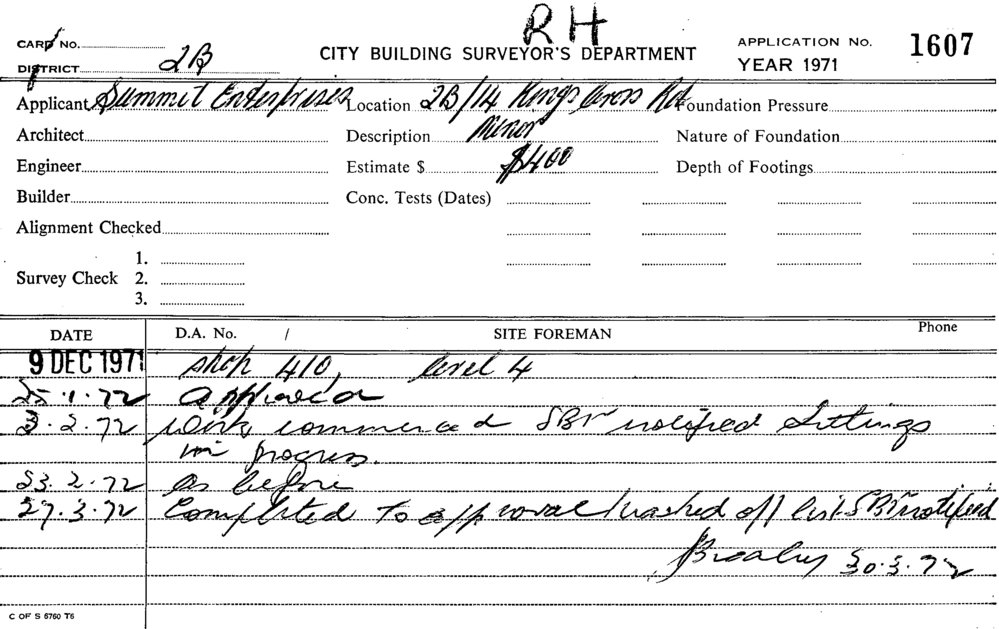 RH
CARD NO.
CITY BUILDING SURVEYOR'S DEPARTMENT
APPLICATION No. 1607
DISTRICT 2B
YEAR 1971
Applicant Summit Enterprises Location 2B/14 Kings Cross Rd Foundation Pressure
Architect Description Minor Nature of Foundation
Engineer Estimate $ $400 Depth of Footings
Builder Conc. Tests (Dates)
Alignment Checked
1.
Survey Check 2.
3.
DATE D.A. No. / SITE FOREMAN Phone
9 DEC 1971 shop 410, level 4
25.1.72 Approved
3.2.72 Work commenced notified fittings
in progress.
23.2.72 As before
27.3.72 Completed to approval / washed off list notified
30.3.72
C OF S 6760 T6